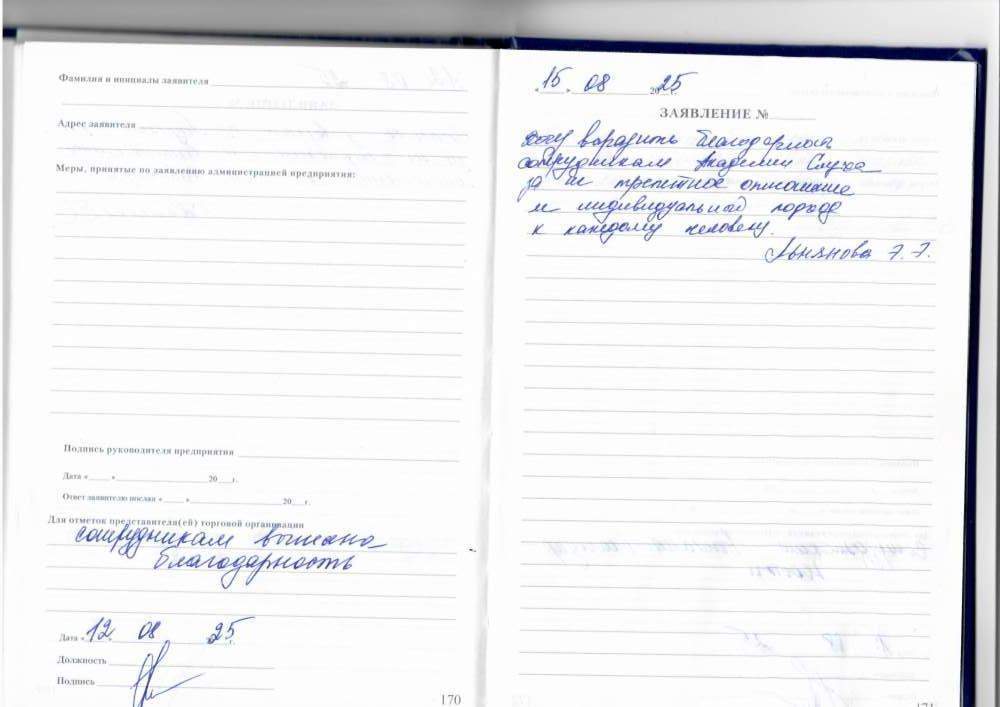 Фамилия и инициалы заявителя
Адрес заявителя
Меры, принятые по заявлению администрацией предприятия:
Подпись руководителя предприятия
Дата « » 20 г.
Ответ заявителю послан « » 20 г.
Для отметок представителя(ей) торговой организации
сотрудникам вынесена
благодарность
Дата « 12. 08 25
Должность
Подпись
170
« 15 » 08 2025 г.
ЗАЯВЛЕНИЕ №
Хочу выразить благодарность
сотрудникам Академии Слуха
за их трепетное отношение
и индивидуальный подход
к каждому человеку.
171